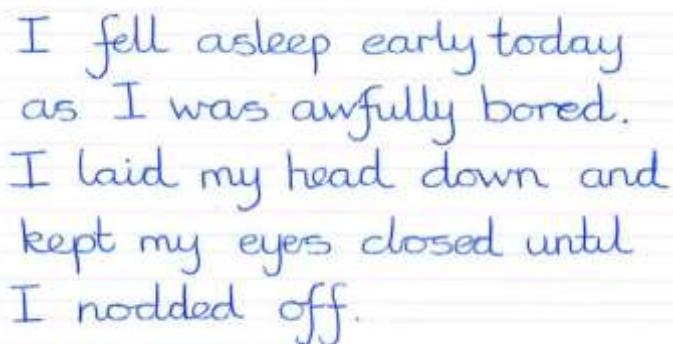 I fell asleep early today
as I was awfully bored.
I laid my head down and
kept my eyes closed until
I nodded off.